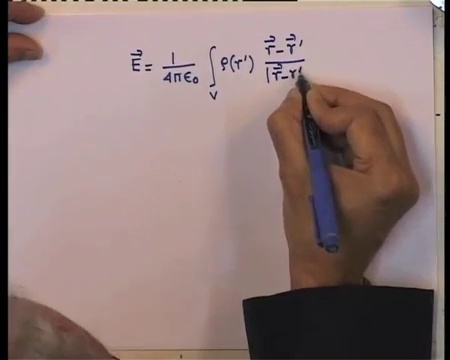 \vec{E} = \frac{1}{4\pi\epsilon_0} \int_V \rho(r') \frac{\vec{r} - \vec{r}'}{|\vec{r} - r'}